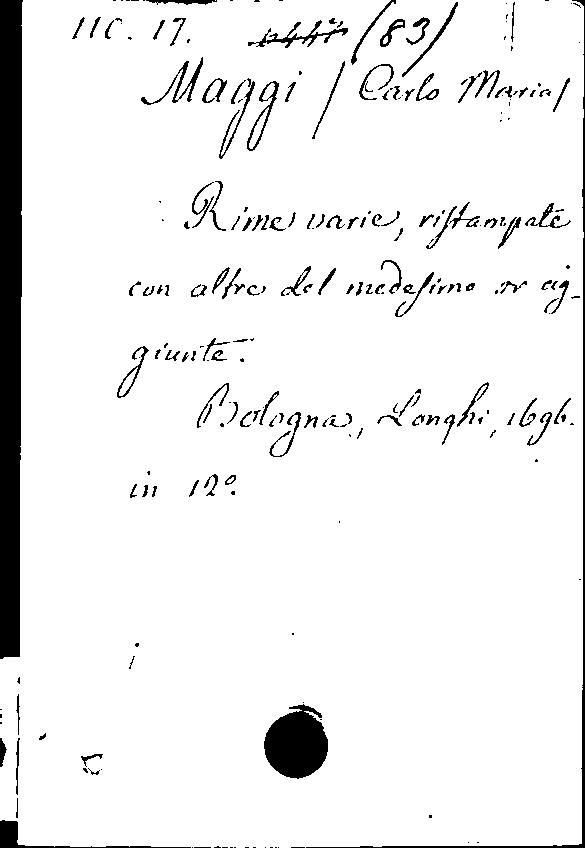 IIC. 17. (83)
Maggi / Carlo Maria/
Rime varie, ristampate
con altre del medesimo or ag-
giunte.
Bologna, Longhi, 1696.
in 12º.